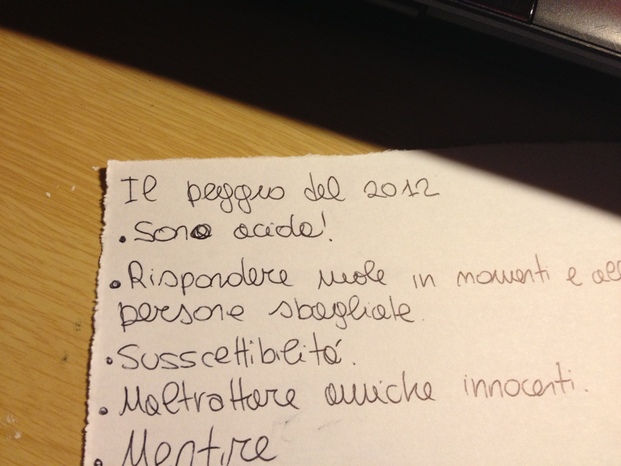 Il peggio del 2012
• Sono acida!
• Rispondere male in momenti e alle
persone sbagliate.
• Susscettibilità.
• Maltrattare amiche innocenti.
• Mentire